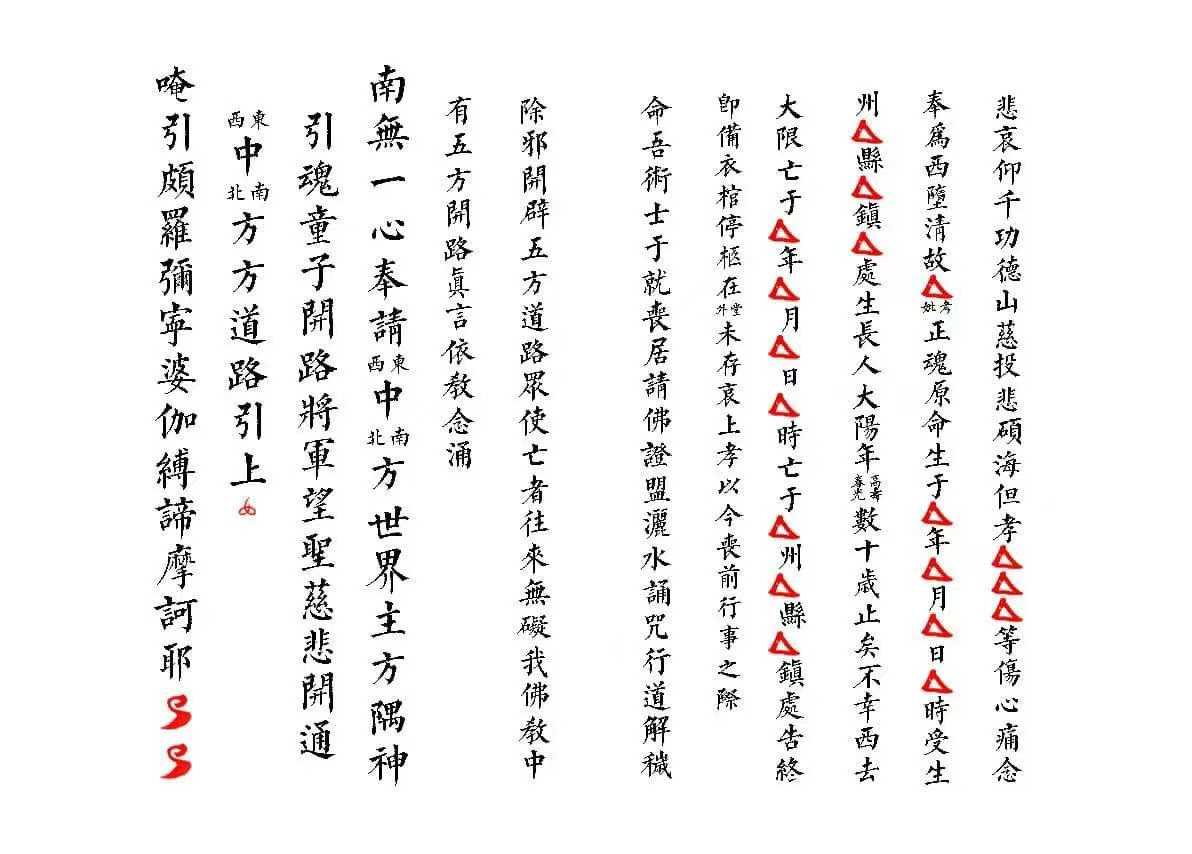 悲哀仰千功德山慈投悲碩海但孝△△△等傷心痛念
奉爲西墮清故△考妣正魂原命生于△年△月△日△時受生
州△縣△鎮△處生長人大陽年高壽春光數十歲止矣不幸西去
大限亡于△年△月△日△時亡于△州△縣△鎮處告終
卽備衣棺停柩在堂外未存哀上孝以今喪前行事之際
命吾術士于就喪居請佛證盟灑水誦咒行道解穢
除邪開辟五方道路眾使亡者往來無礙我佛教中
有五方開路眞言依教念涌
南無一心奉請東西中南北方世界主方隅神
引魂童子開路將軍望聖慈悲開通
東西中南北方方道路引上
唵引頗羅彌寜婆伽縛諦摩訶耶